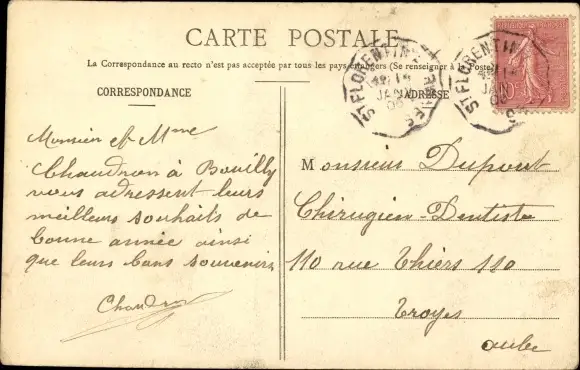 CARTE POSTALE
La Correspondance au recto n'est pas acceptée par tous les pays étrangers (Se renseigner à la Poste)
CORRESPONDANCE
ADRESSE
Monsieur et Mme
Chaudron à Bouilly
vous adressent leurs
meilleurs souhaits de
bonne année ainsi
que leurs bons souvenirs
Chaudron
Monsieur Dupont
Chirugien-Dentiste
110 rue Thiers 120
Troyes
Aube
ST FLORENTIN
14
JANV
ST FLORENTIN
14
JAN
10c